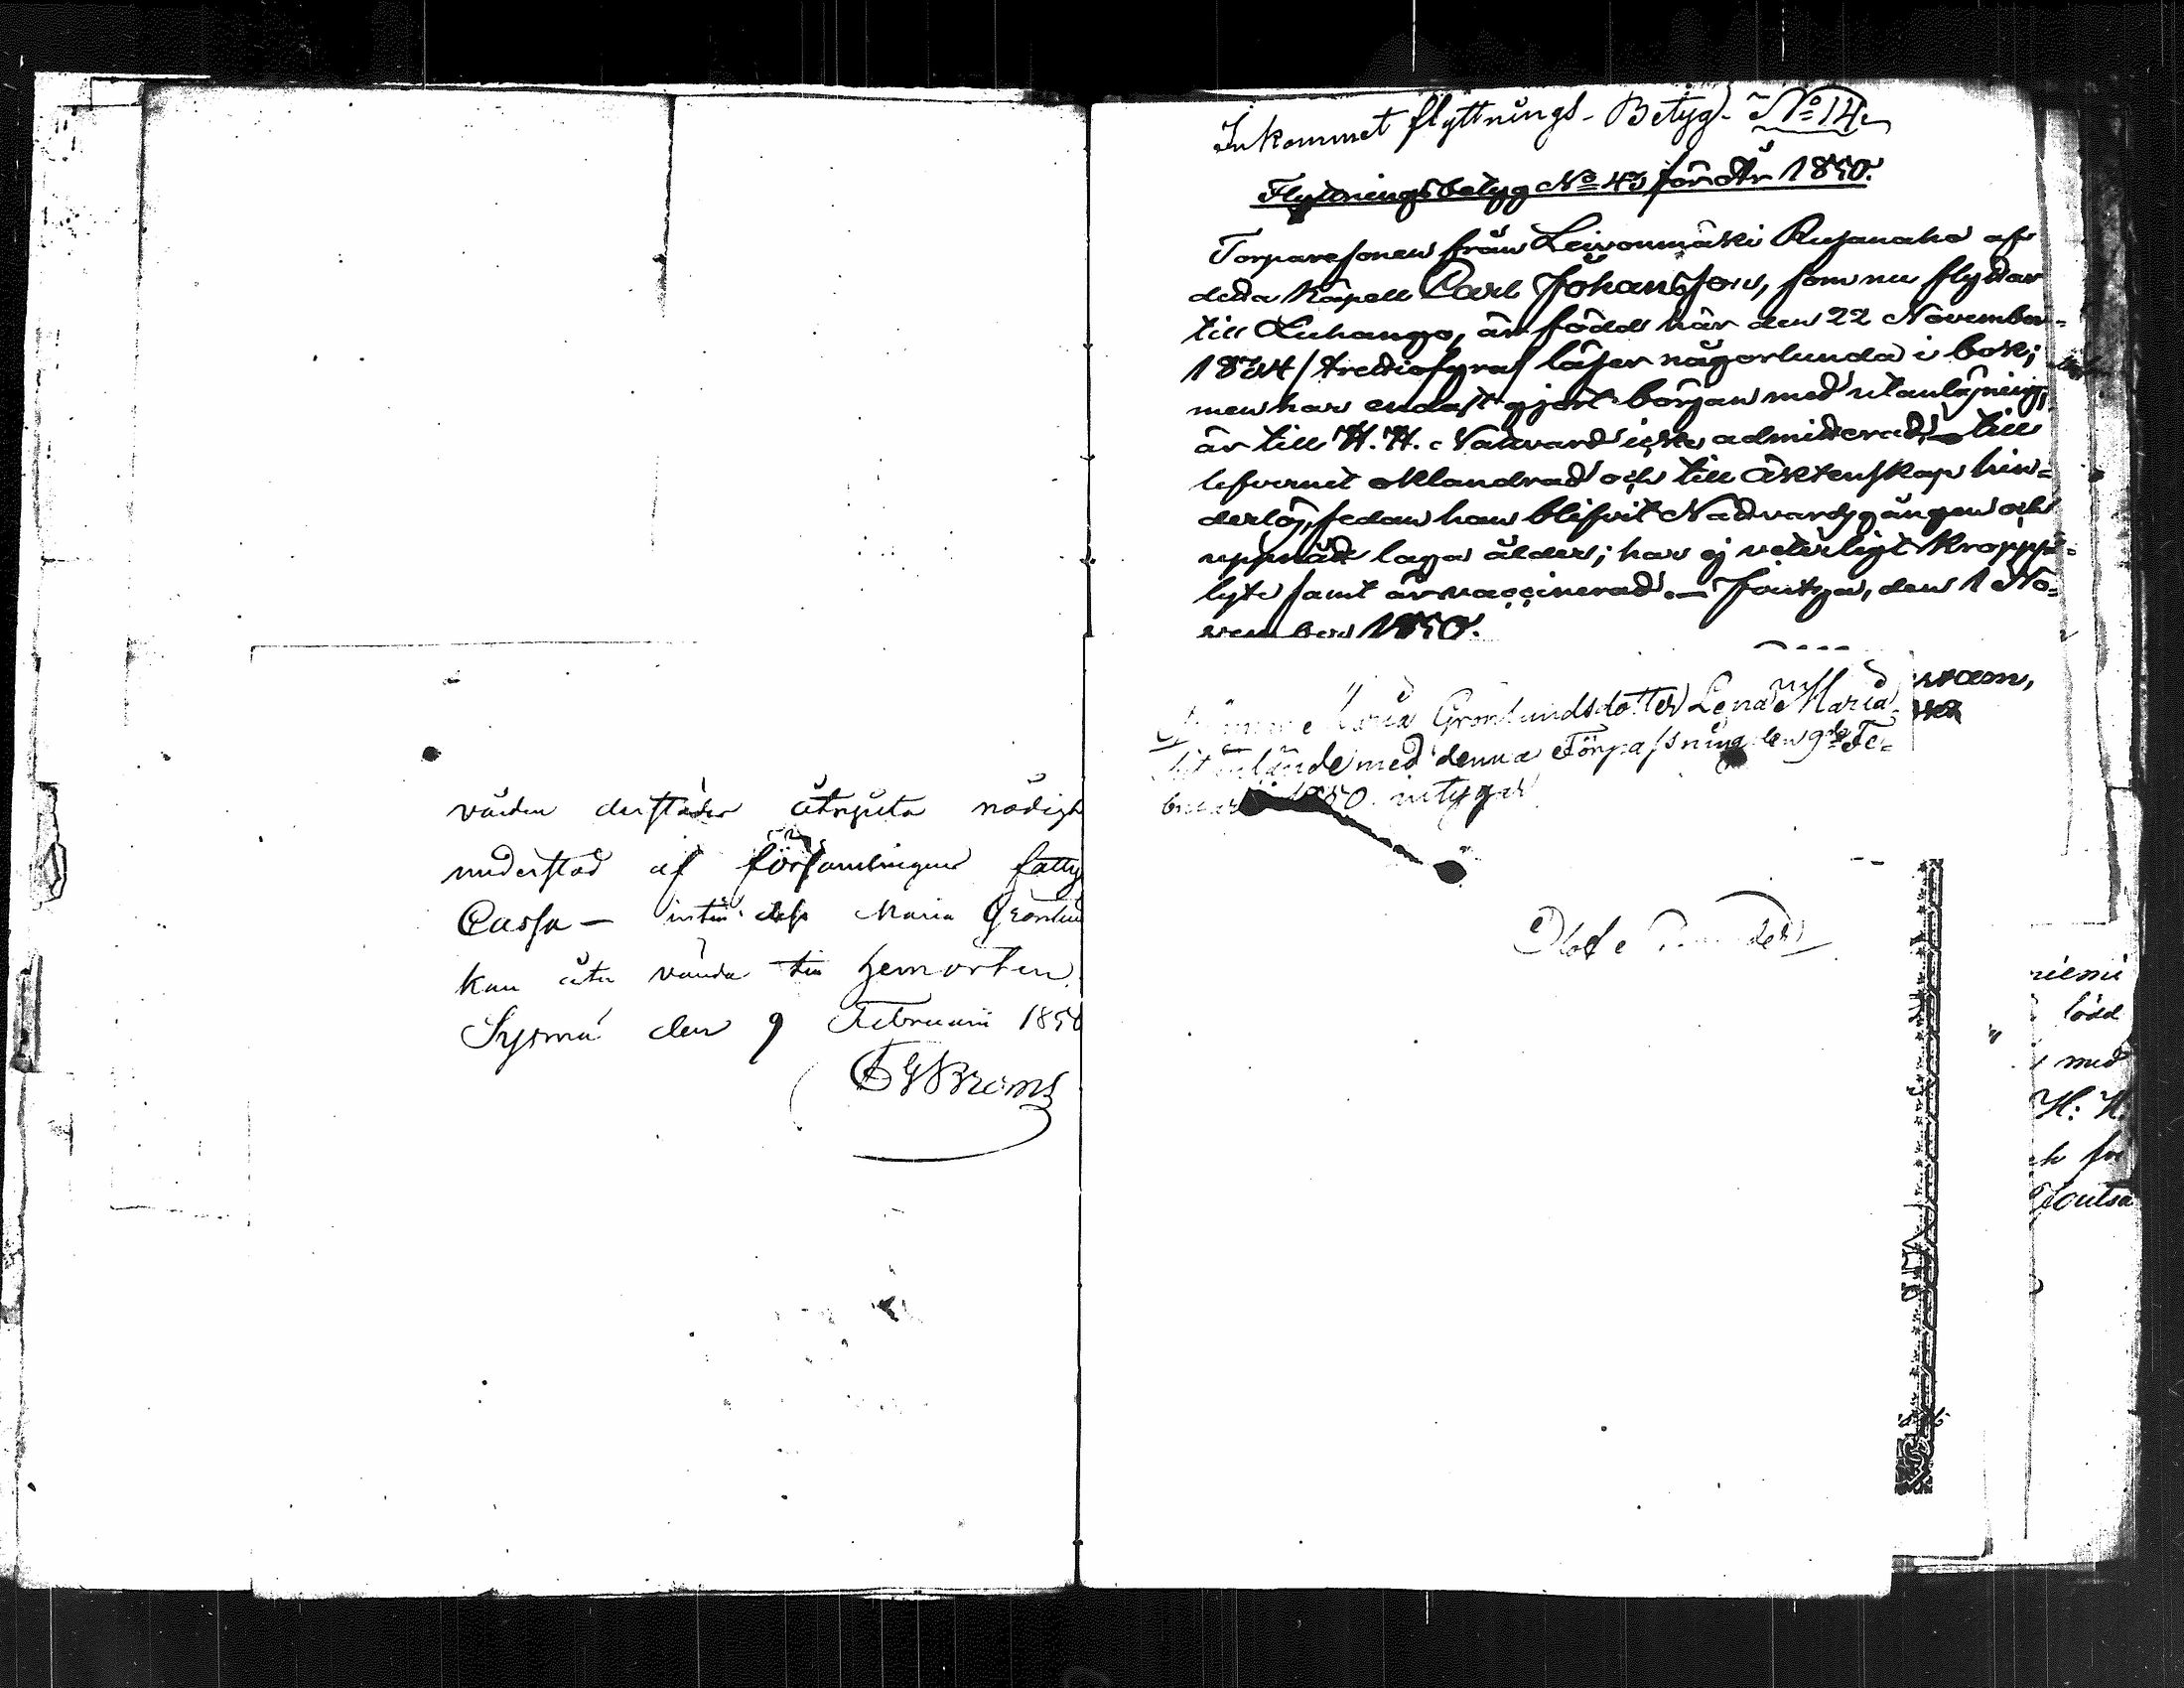 vården derstädes åtnjuta nödigt
understöd af församlingens fattig
Cassa — intill dess Maria Grönlund
kan åter vända till hemorten.
Sysmä den 9 Februarii 1850
Inkommet flyttnings-Betyg No 14.
Flyttningsbetyg No 43 för År 1850.
Torparesonen från Leivonmäki Rusanaho af
detta Kapell Carl Johansson, som nu flyttar
till Luhango, är född här den 22 November
1834/trettiofyra/ läser någorlunda i bok;
men har endast gjort början med utanläsning;
är till H. H. Nattvard icke admitterad; till
lefvernet oklandrad och till äktenskap hin-
derlös, sedan han blifvit Nattvardsgången och
uppnått laga ålder; har ej veterligt kropps-
lyte samt är vaccinerad. — Joutza, den 1 No-
vember 1850.
Maria Grönlundsdotter Lena Maria
med denna Förpassning den 9de Fe-
1850. intygar
Olof
född
med
H: H.
Joutsa